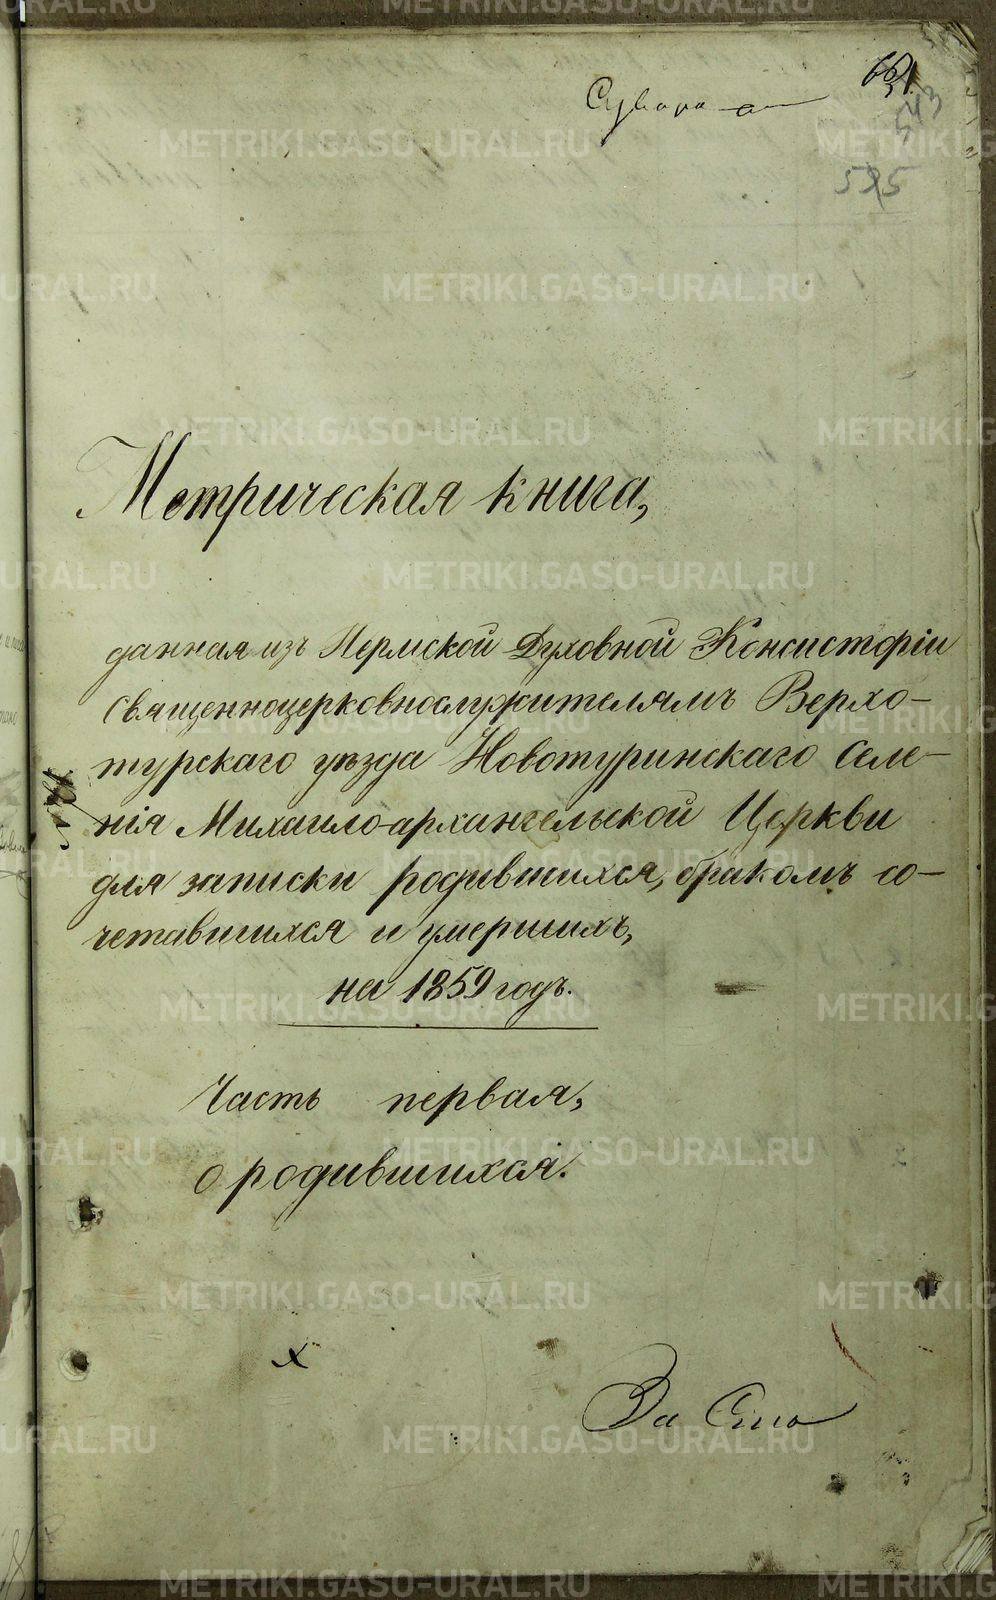 543
525
Метрическая книга,
данная изъ Пермской Духовной Консисторіи
священноцерковнослужителямъ Верхо-
турскаго уѣзда Новотуринскаго Селе-
нія Михаило-архангельской Церкви
для записки родившихся, бракомъ со-
четавшихся и умершихъ,
на 1859 годъ.
Часть первая,
о родившихся.
х
За
METRIKI.GASO-URAL.RU